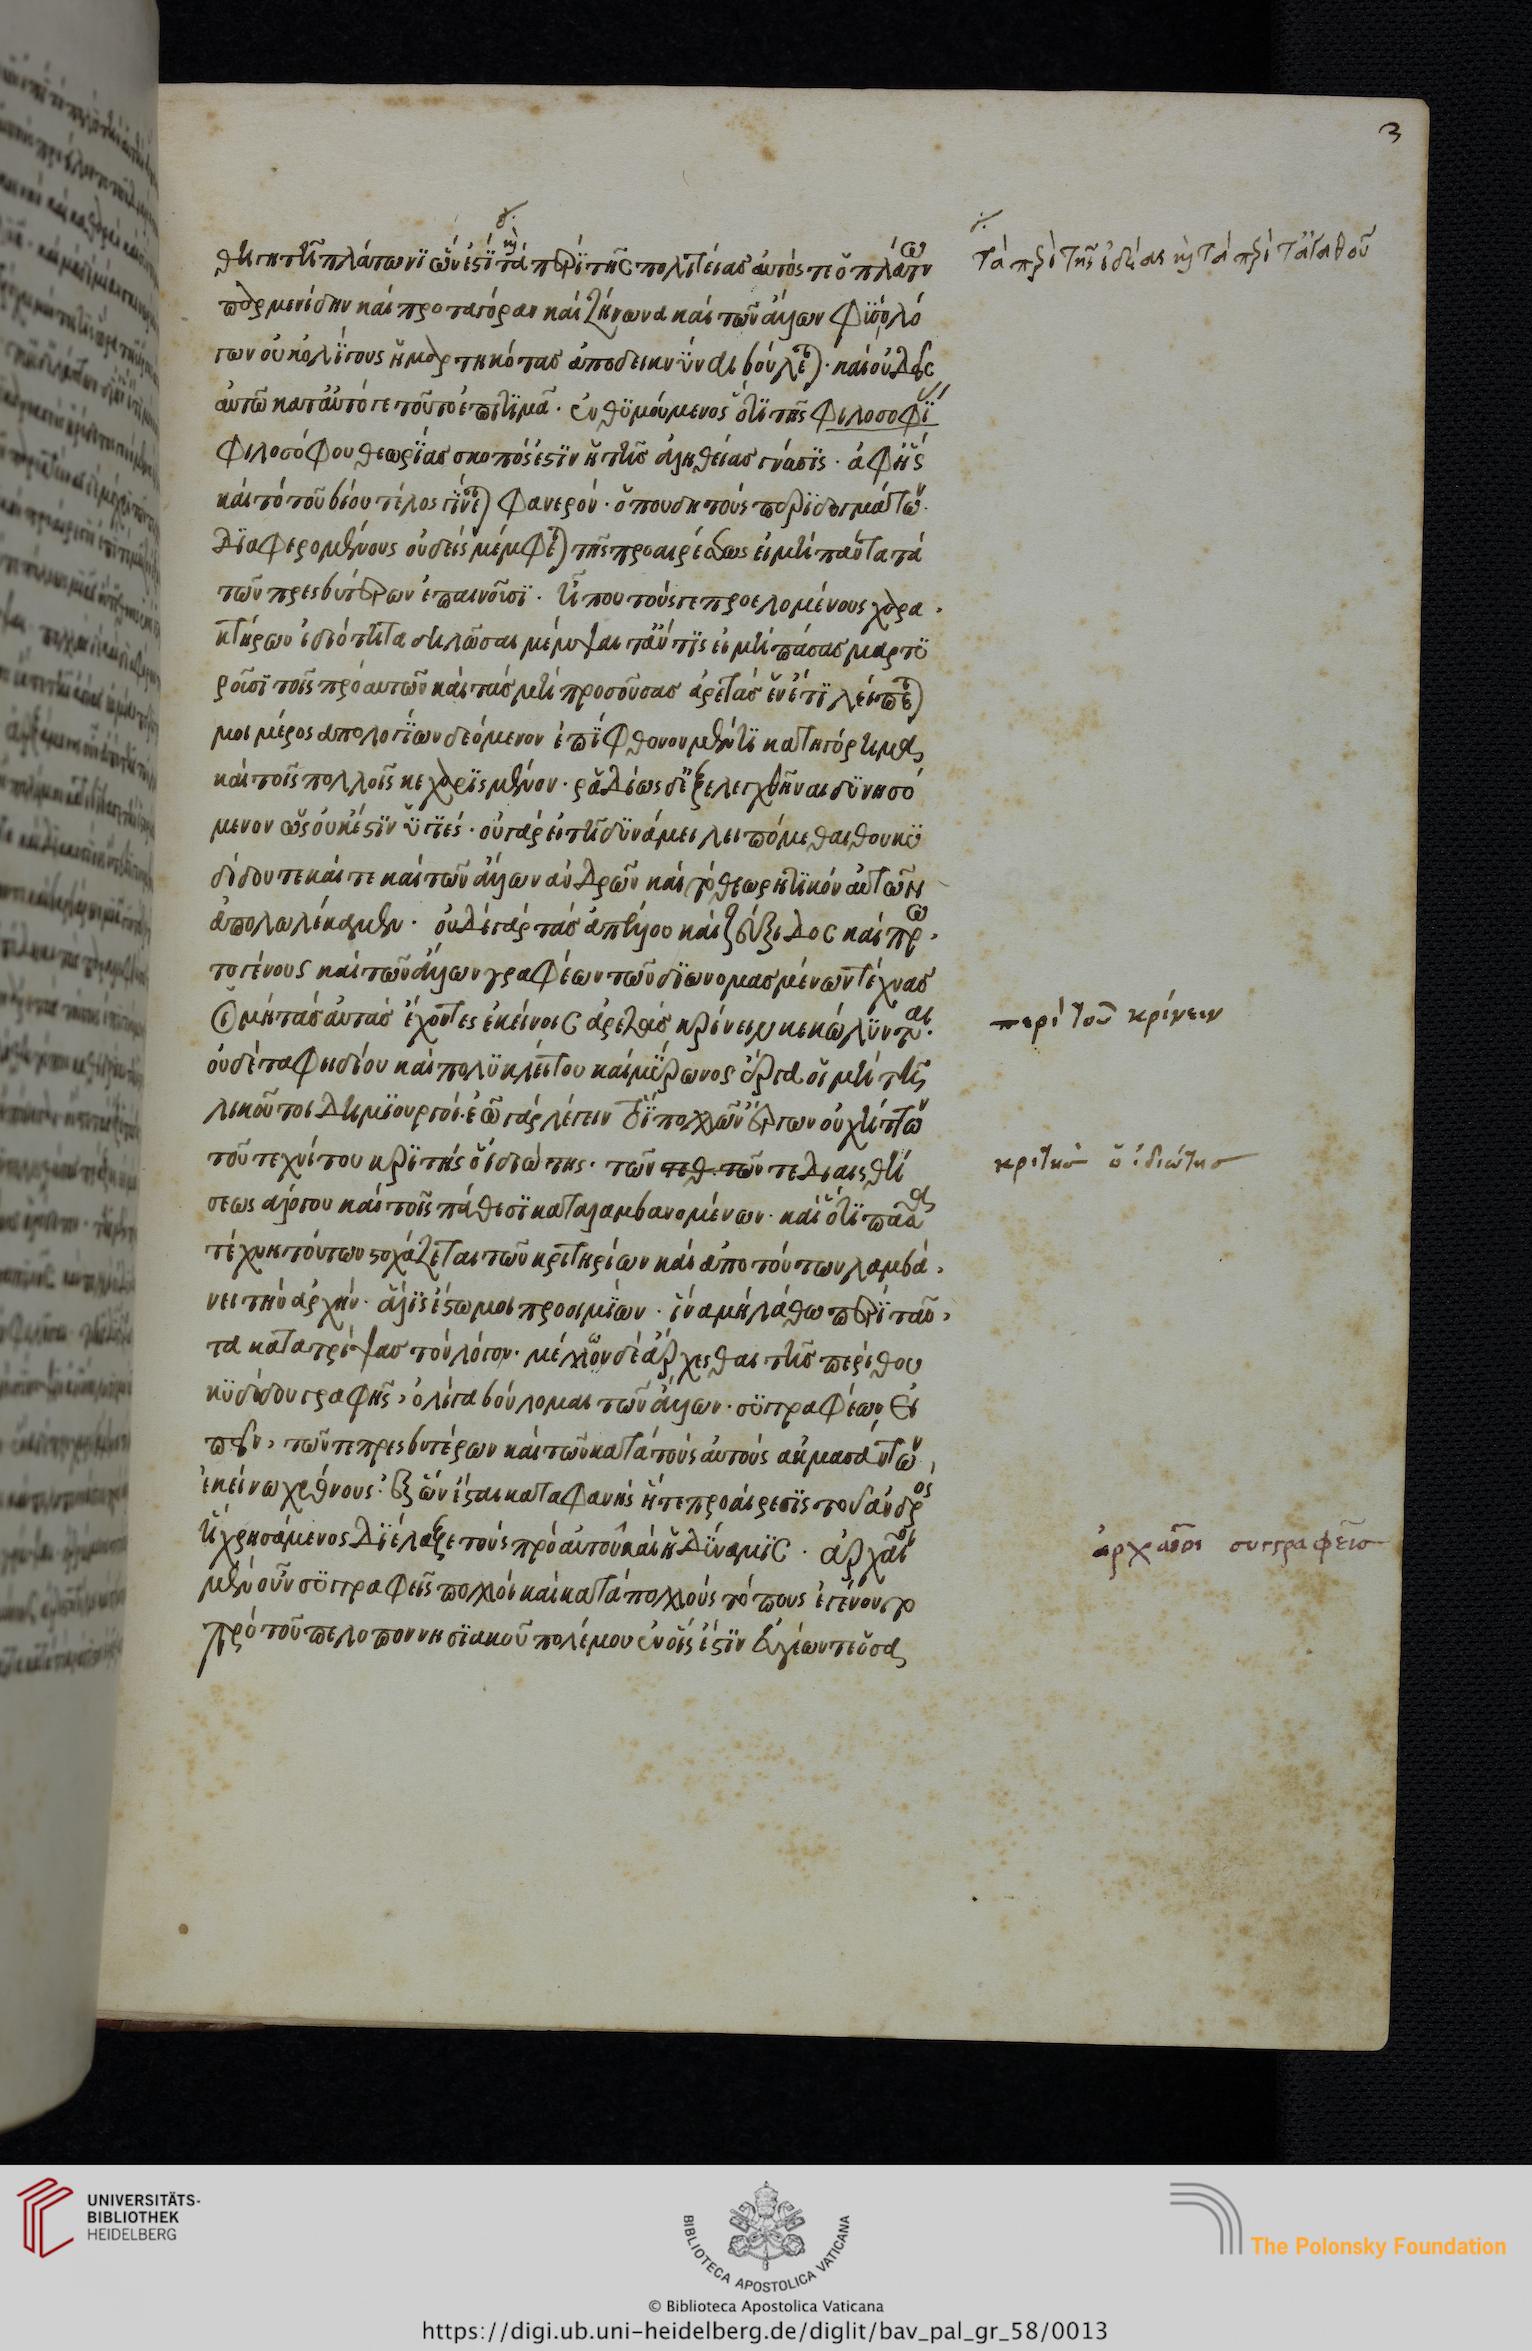 3
θέντα τῆ πλάτωνι ὧν ἐστὶ καὶ τὰ περὶ τῆς πολιτείας αὐτός τε ὁ πλάτων
παρμενίδην καὶ πρωταγόραν καὶ ζήνωνα καὶ τῶν ἄλλων φϋσιολό
γων οὐκ ὀλίγους ἡμαρτηκότας ἀποδεικνύναι βούλεται· καὶ οὐδεὶς
αὐτῶ κατ' αὐτό γε τοῦτο ἐπιτιμᾶ· ἐνθυμούμενος ὅτι τῆς φιλοσοφϊ
φιλοσόφου θεωρίας σκοπός ἐστιν ἡ τῆς ἀληθείας γνῶσις· ἀφ' ἧς
καὶ τὸ τοῦ βίου τέλος γίνεται φανερόν· ὅπου δὴ τοὺς περὶ δογμάτων
διαφερομένους οὐδεὶς μέμφεται τῆς προαιρέσεως εἰ μὴ πάντα τὰ
τῶν πρεσβυτέρων ἐπαινοῖσι· ἦ που τούς γε προελομένους χαρα
κτήρων ἰδιότητα δηλῶσαι μέμψαι τ' ἄν τις εἰ μὴ πάσας μαρτυ
ροῖσι τοῖς πρὸ αὐτῶν καὶ τὰς μὴ προσούσας ἀρετάς ἓν ἔτι λείπεται
μοι μέρος ἀπολογίων δεόμενον ἐπίφθονον μέν τι κατηγόρημα
καὶ τοῖς πολλοῖς κεχαρισμένον· ῥαδίως δ' ἐξελεγχθῆναι δυνησό
μενον ὡς οὐκ ἔστιν ὑγιές· οὐ γὰρ εἰ τῆ δυνάμει λειπόμεθα θουκυ
δίδου τε καί τε καὶ τῶν ἄλλων ἀνδρῶν καὶ τὸ θεωρητικὸν αὐτῶν
ἀπολωλέκαμεν· οὐδὲ γὰρ τὰς ἀπελλοῦ καὶ ζεύξιδος καὶ πρω
τογένους καὶ τῶν ἄλλων γραφέων τῶν διωνομασμένων τέχνας
οἱ μὴ τὰς αὐτὰς ἔχοντες ἐκείνοις ἀρετὰς κρίνειν κεκώλυνται·
οὐδὲ τὰ φειδίου καὶ πολυκλείτου καὶ μύρωνος ἔργα οἱ μὴ τη
λικοῦτοι δημιουργοί· ἐῶ γὰρ λέγειν ὅτι πολλῶν ἔργων οὐχ ἥττων
τοῦ τεχνίτου κριτὴς ὁ ἰδιώτης· τῶν πεθ τῶν τε δι' αἰσθή
σεως ἀλόγου καὶ τοῖς πάθεσι καταλαμβανομένων· καὶ ὅτι πᾶσα
τέχνη τούτων στοχάζεται τῶν κριτηρίων καὶ ἀπὸ τούτων λαμβά
νει τὴν ἀρχήν· ἅλις ἔστω μοι προοιμίων· ἵνα μὴ λάθω περὶ ταῦ
τα κατατρίψας τὸν λόγον· μέλλων δὲ ἄρχεσθαι τῆς περὶ θου
κυδίδου γραφῆς, ὀλίγα βούλομαι τῶν ἄλλων· συγγραφέων εἰ
πεῖν, τῶν τε πρεσβυτέρων καὶ τῶν κατὰ τοὺς αὐτοὺς ἀκμασάντων
ἐκείνω χρόνους· ἐξ ὧν ἔσται καταφανὴς ἥ τε προαίρεσις τοῦ ἀνδρός
ἧ χρησάμενος διέλαξε τοὺς πρὸ αὐτοῦ καὶ ἡ δύναμις· ἀρχαῖοι
μὲν οὖν συγγραφεῖς πολλοὶ καὶ κατὰ πολλοὺς τόπους ἐγένοντο
πρὸ τοῦ πελοποννησιακοῦ πολέμου ἐν οἷς ἐστὶν εὐγέων τε ὁ σα
τὰ περὶ τῆς ἰδέας καὶ τὰ περὶ τἀγαθοῦ
περὶ τοῦ κρίνειν
κριτὴσ ὁ ἰδιώτησ
ἀρχαῖοι συγγραφεῖσ
UNIVERSITÄTS-
BIBLIOTHEK
HEIDELBERG
BIBLIOTECA APOSTOLICA VATICANA
The Polonsky Foundation
© Biblioteca Apostolica Vaticana
https://digi.ub.uni-heidelberg.de/diglit/bav_pal_gr_58/0013